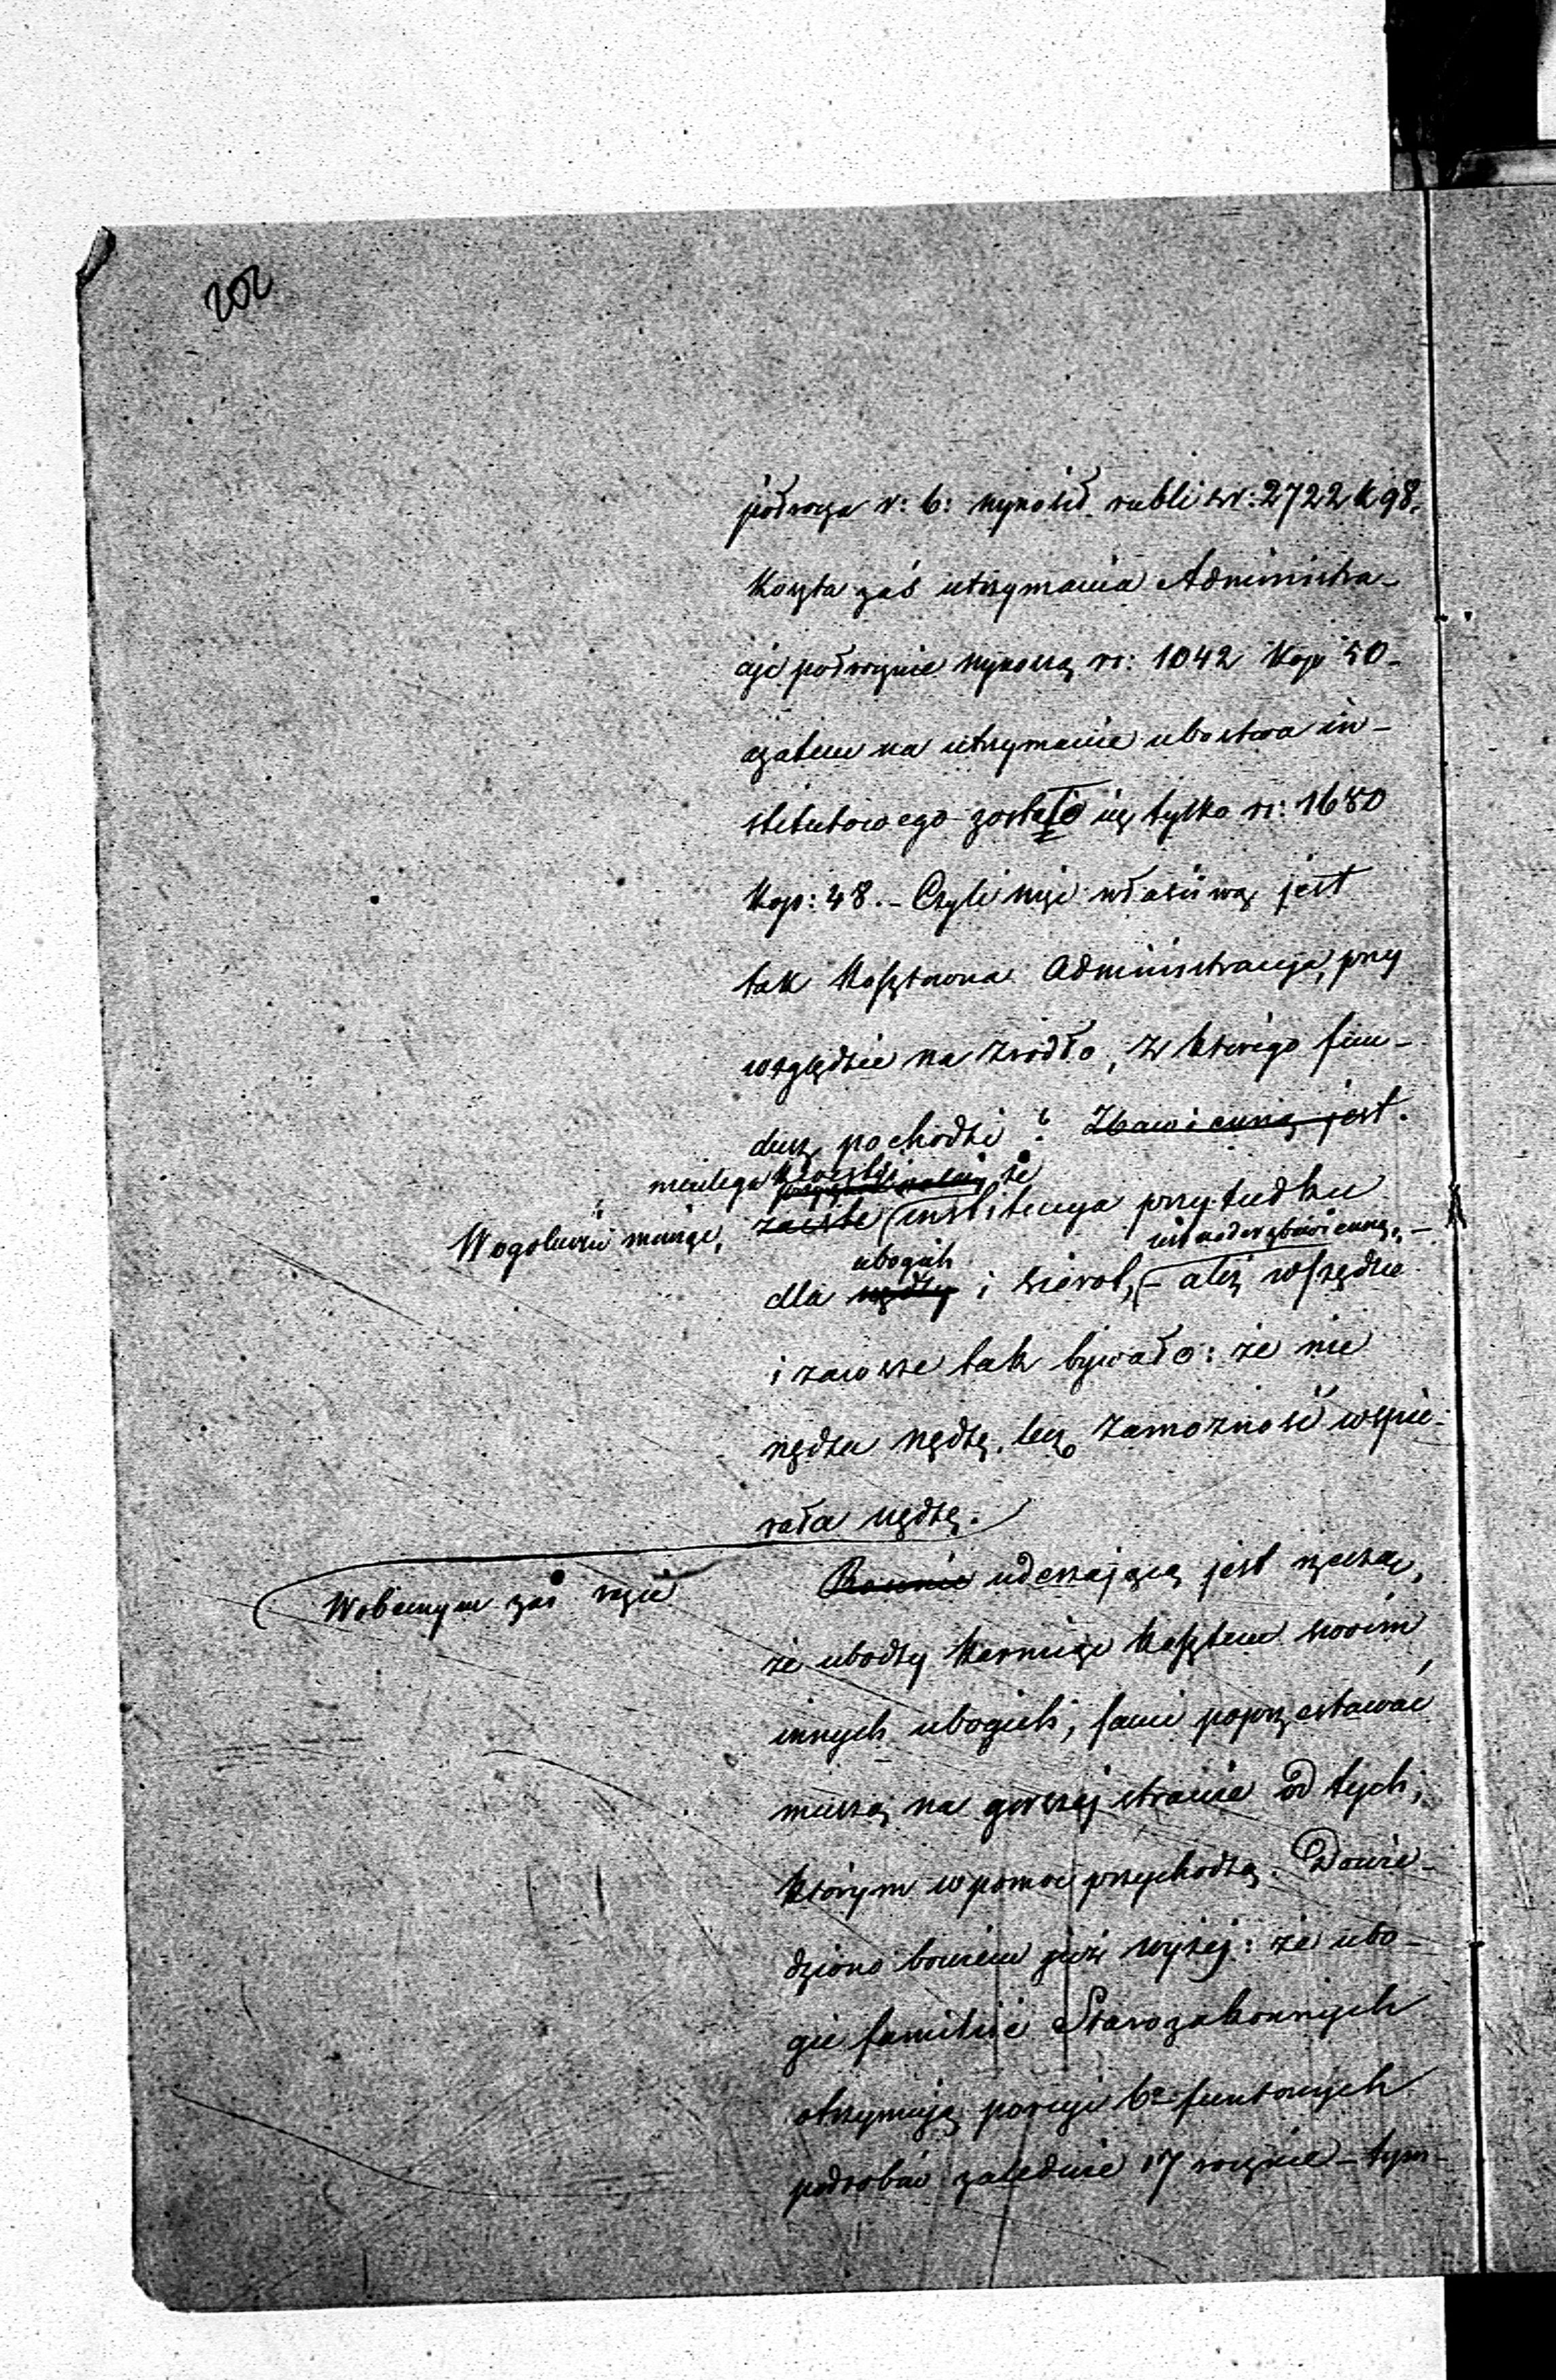 202
półrocza r: b: wynosił rubli sr: 2722 k 98.
Koszta zaś utrzymania Administra-
cji półrocznie wynoszą rs: 1042 Kop 50-
a zatem na utrzymanie ubostwa in-
stitutowego zostało się tylko rs: 1680
Kop: 48. - Czyli więc właściwą jest
tak kosztowna Administracyja, przy
względzie na zrodło, z którego fun-
dusz pochodzi? Zbawienną jest.
nieulega że
Wogolności mówiąc, zaiste institucya przytułku
ubogich jest nader zbawienną, -
dla nędzy i sierot, - ależ wszędzie
i zawsze tak bywało: że nie
nędza nędzę, lecz zamożność wspie-
rała nędzę.
Wobecnym zaś razie Równie uderzającą jest rzeczą,
że ubodzy karmiąc kosztem swoim
innych ubogich, sami poprzestawać
muszą na gorszej strawie od tych,
którym w pomoc przychodzą. Dowie-
dziono bowiem już wyżej: że ubo-
gie familie Starozakonnych
otrzymują porcyi 6o funtowych
podrobać zaledwie 17 rocznie - tym-